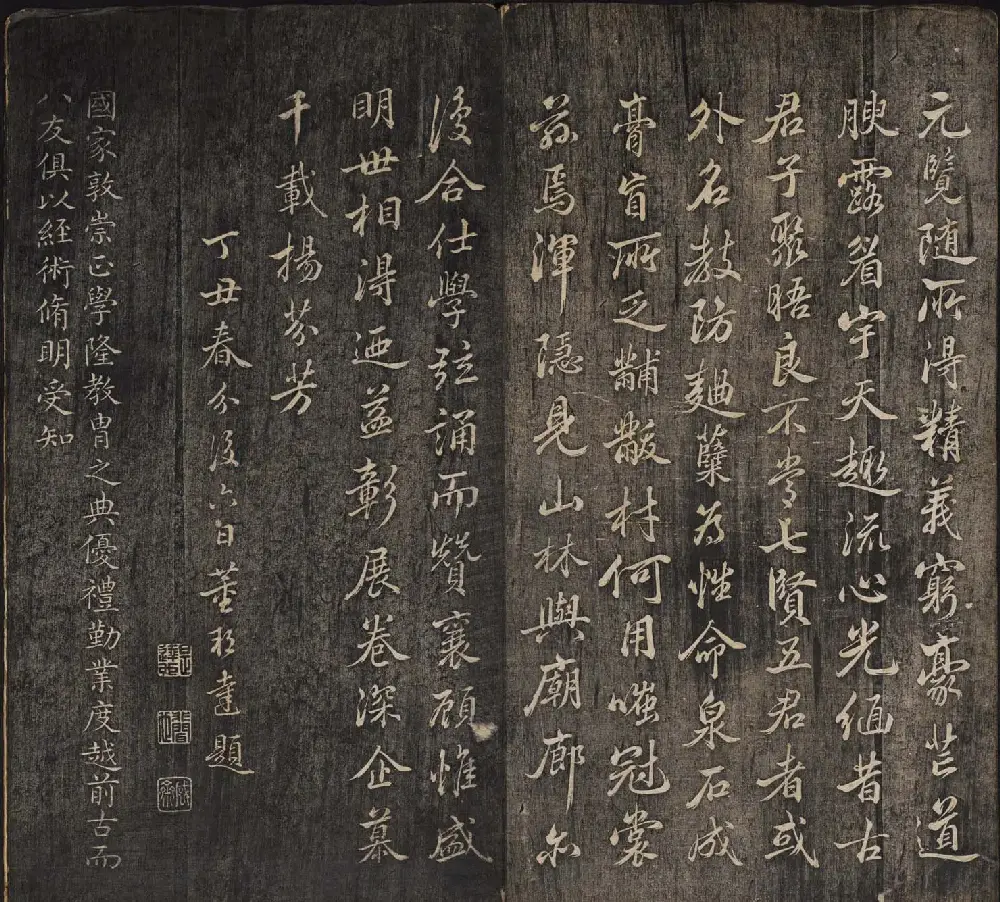 元覽随所得精義窮豪芒道
腴露眉宇天趣流心光緬昔古
君子聚晤良不常七賢五君者或
外名教防麯蘖為性命泉石成
膏肓所乏黼黻材何用嗤冠裳
茲焉渾隱見山林與廟廊亦
復合仕學弦誦而贊襄顧惟盛
明世相得迺益彰展卷深企慕
千載揚芬芳
丁丑春分後六日董邦達題
國家敦崇正學隆教胄之典優禮勤業度越前古而
八友俱以経術脩明受知